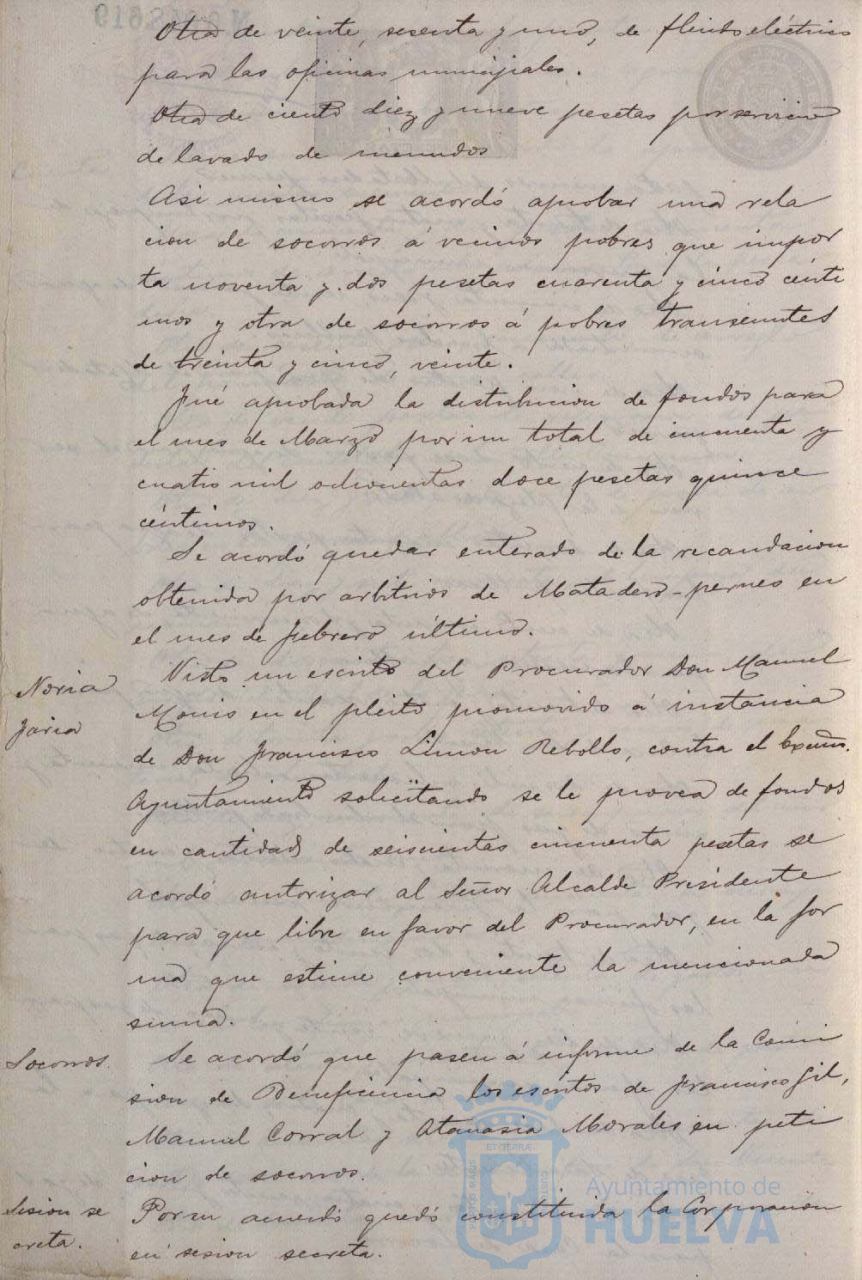 Otra de veinte, sesenta y uno, de fluido eléctrico
para las oficinas municipales.
Otra de ciento diez y nueve pesetas por servicio
de lavado de menudos
Asi mismo se acordó aprobar una rela
cion de socorros á vecinos pobres que impor
ta noventa y dos pesetas cuarenta y cinco cénti
mos y otra de socorros á pobres transeuntes
de treinta y cinco, veinte.
Fué aprobada la distribucion de fondos para
el mes de Marzo por un total de cincuenta y
cuatro mil ochocientas doce pesetas quince
céntimos.
Se acordó quedar enterado de la recaudacion
obtenida por arbitrios de Matadero-perneo en
el mes de Febrero último.
Noria
Jaria
Visto un escrito del Procurador Don Manuel
Monis en el pleito promovido á instancia
de Don Francisco Limon Rebollo, contra el Excmo.
Ayuntamiento solicitando se le provea de fondos
en cantidad de seiscientas cincuenta pesetas se
acordó autorizar al Señor Alcalde Presidente
para que libre en favor del Procurador, en la for
ma que estime conveniente la mencionada
suma.
Socorros.
Se acordó que pasen á informe de la Comi
sion de Beneficencia los escritos de Francisco Gil,
Manuel Corral y Atanasia Morales en peti
cion de socorros.
Sesion se
creta.
Por su acuerdo quedó constituida la Corporacion
en sesion secreta.
Ayuntamiento de
HUELVA